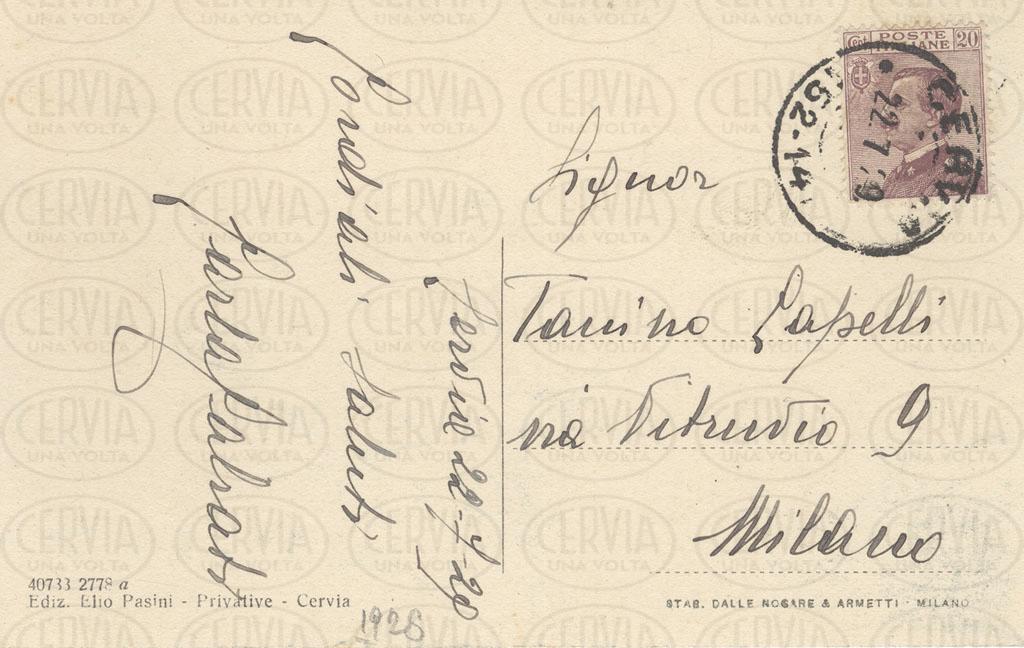 Cervia 22-7-29
Cordiali saluti
POSTE
ITALIANE
Cent. 20
CERVIA
22.7.29
Signor
Tanino Capelli
via Vitruvio 9
Milano
40733 2778 a
Ediz. Elio Pasini - Privative - Cervia
1928
STAB. DALLE NOGARE & ARMETTI - MILANO
CERVIA
UNA VOLTA